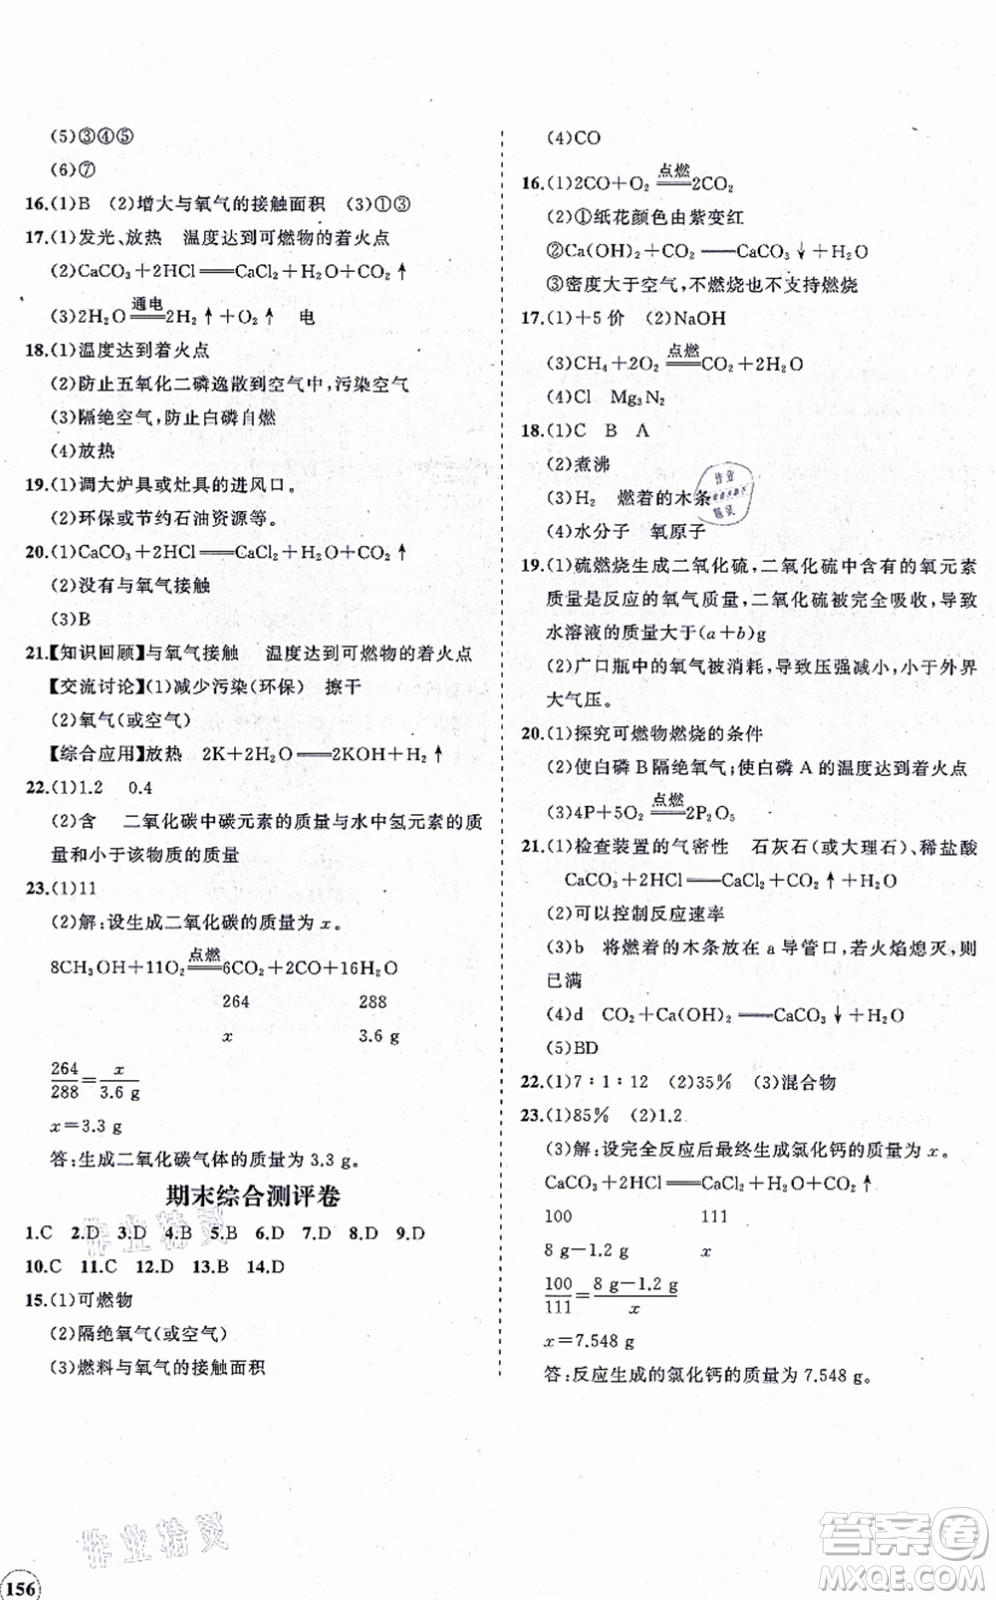 (5)③④⑤
(6)⑦
16.(1)B (2)增大与氧气的接触面积 (3)①③
17.(1)发光、放热 温度达到可燃物的着火点
(2)CaCO₃+2HCl══CaCl₂+H₂O+CO₂↑
(3)2H₂O══(通电)2H₂↑+O₂↑ 电
18.(1)温度达到着火点
(2)防止五氧化二磷逸散到空气中,污染空气
(3)隔绝空气,防止白磷自燃
(4)放热
19.(1)调大炉具或灶具的进风口。
(2)环保或节约石油资源等。
20.(1)CaCO₃+2HCl══CaCl₂+H₂O+CO₂↑
(2)没有与氧气接触
(3)B
21.【知识回顾】与氧气接触 温度达到可燃物的着火点
【交流讨论】(1)减少污染(环保) 擦干
(2)氧气(或空气)
【综合应用】放热 2K+2H₂O══2KOH+H₂↑
22.(1)1.2 0.4
(2)含 二氧化碳中碳元素的质量与水中氢元素的质
量和小于该物质的质量
23.(1)11
(2)解:设生成二氧化碳的质量为 x。
8CH₃OH+11O₂══(点燃)6CO₂+2CO+16H₂O
264 288
x 3.6 g
264/288=x/3.6 g
x=3.3 g
答:生成二氧化碳气体的质量为 3.3 g。
期末综合测评卷
1.C 2.D 3.D 4.B 5.B 6.D 7.D 8.D 9.D
10.C 11.C 12.D 13.B 14.D
15.(1)可燃物
(2)隔绝氧气(或空气)
(3)燃料与氧气的接触面积
(4)CO
16.(1)2CO+O₂══(点燃)2CO₂
(2)①纸花颜色由紫变红
②Ca(OH)₂+CO₂══CaCO₃↓+H₂O
③密度大于空气,不燃烧也不支持燃烧
17.(1)+5 价 (2)NaOH
(3)CH₄+2O₂══(点燃)CO₂+2H₂O
(4)Cl Mg₃N₂
18.(1)C B A
(2)煮沸
(3)H₂ 燃着的木条
(4)水分子 氧原子
19.(1)硫燃烧生成二氧化硫,二氧化硫中含有的氧元素
质量是反应的氧气质量,二氧化硫被完全吸收,导致
水溶液的质量大于(a+b)g
(2)广口瓶中的氧气被消耗,导致压强减小,小于外界
大气压。
20.(1)探究可燃物燃烧的条件
(2)使白磷 B 隔绝氧气;使白磷 A 的温度达到着火点
(3)4P+5O₂══(点燃)2P₂O₅
21.(1)检查装置的气密性 石灰石(或大理石)、稀盐酸
CaCO₃+2HCl══CaCl₂+H₂O+CO₂↑
(2)可以控制反应速率
(3)b 将燃着的木条放在 a 导管口,若火焰熄灭,则
已满
(4)d CO₂+Ca(OH)₂══CaCO₃↓+H₂O
(5)BD
22.(1)7∶1∶12 (2)35% (3)混合物
23.(1)85% (2)1.2
(3)解:设完全反应后最终生成氯化钙的质量为 x。
CaCO₃+2HCl══CaCl₂+H₂O+CO₂↑
100 111
8 g−1.2 g x
100/111=8 g−1.2 g/x
x=7.548 g
答:反应生成的氯化钙的质量为 7.548 g。
作业精灵
156
答案圈
MXQE.COM